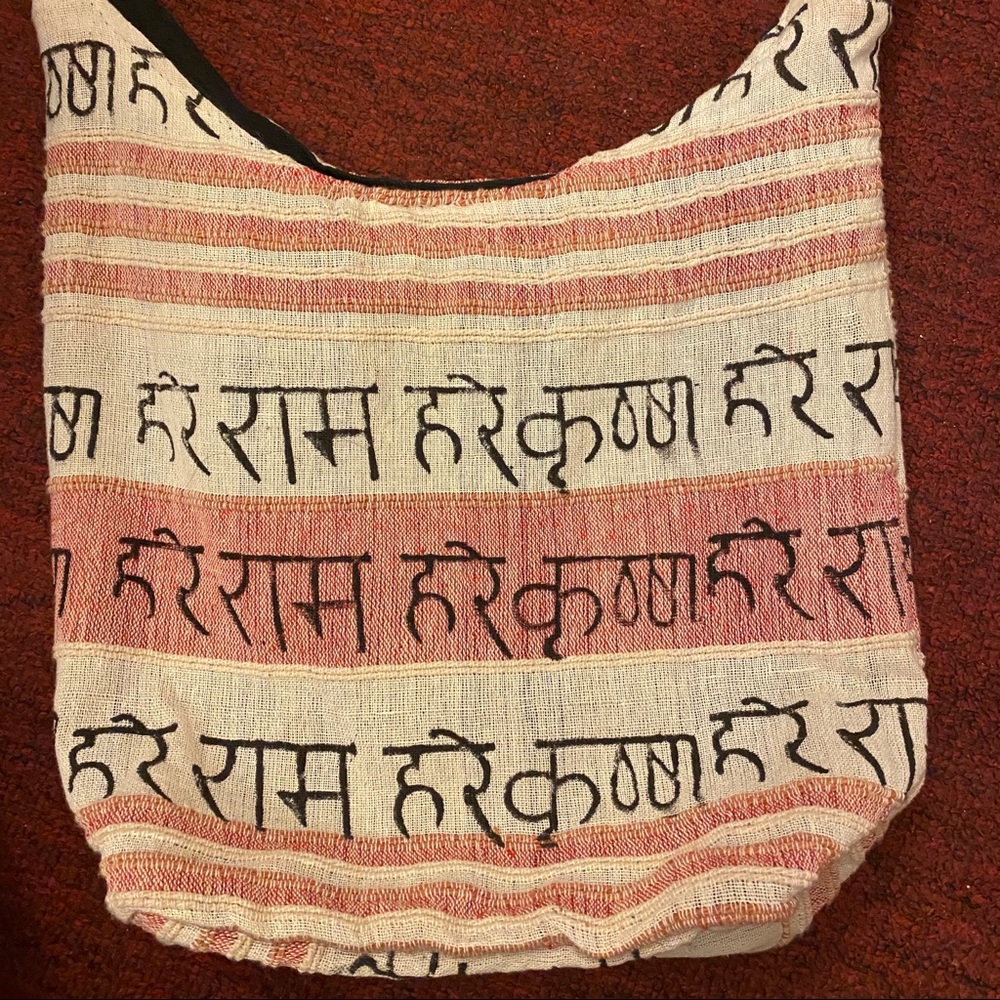 ष्ण हरे
हरे रा
ष्ण हरे राम हरे कृष्ण हरे रा
हरे राम हरे कृष्ण हरे रा
हरे राम हरे कृष्ण हरे रा